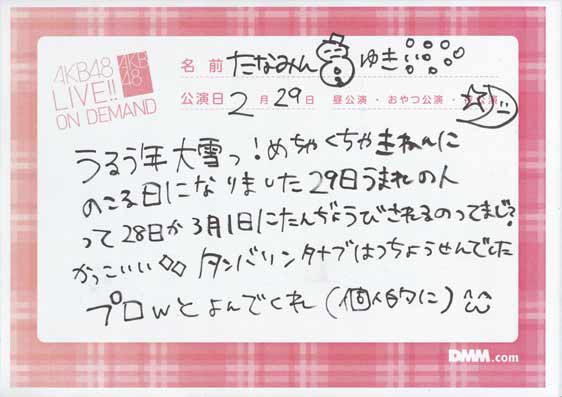 AKB48
LIVE!!
ON DEMAND
AKB
48
名前 たなみん ゆき
公演日 2月29日 昼公演・おやつ公演・夜公演
うるう年大雪っ!めちゃくちゃきねんに
のこる日になりました29日うまれの人
って28日か3月1日にたんぢょうびされるのってまじ?
かっこいい◇◇ タンバリンタナブはっちょうせんでした
プロwとよんでくれ(個人的に)^^
DMM.com